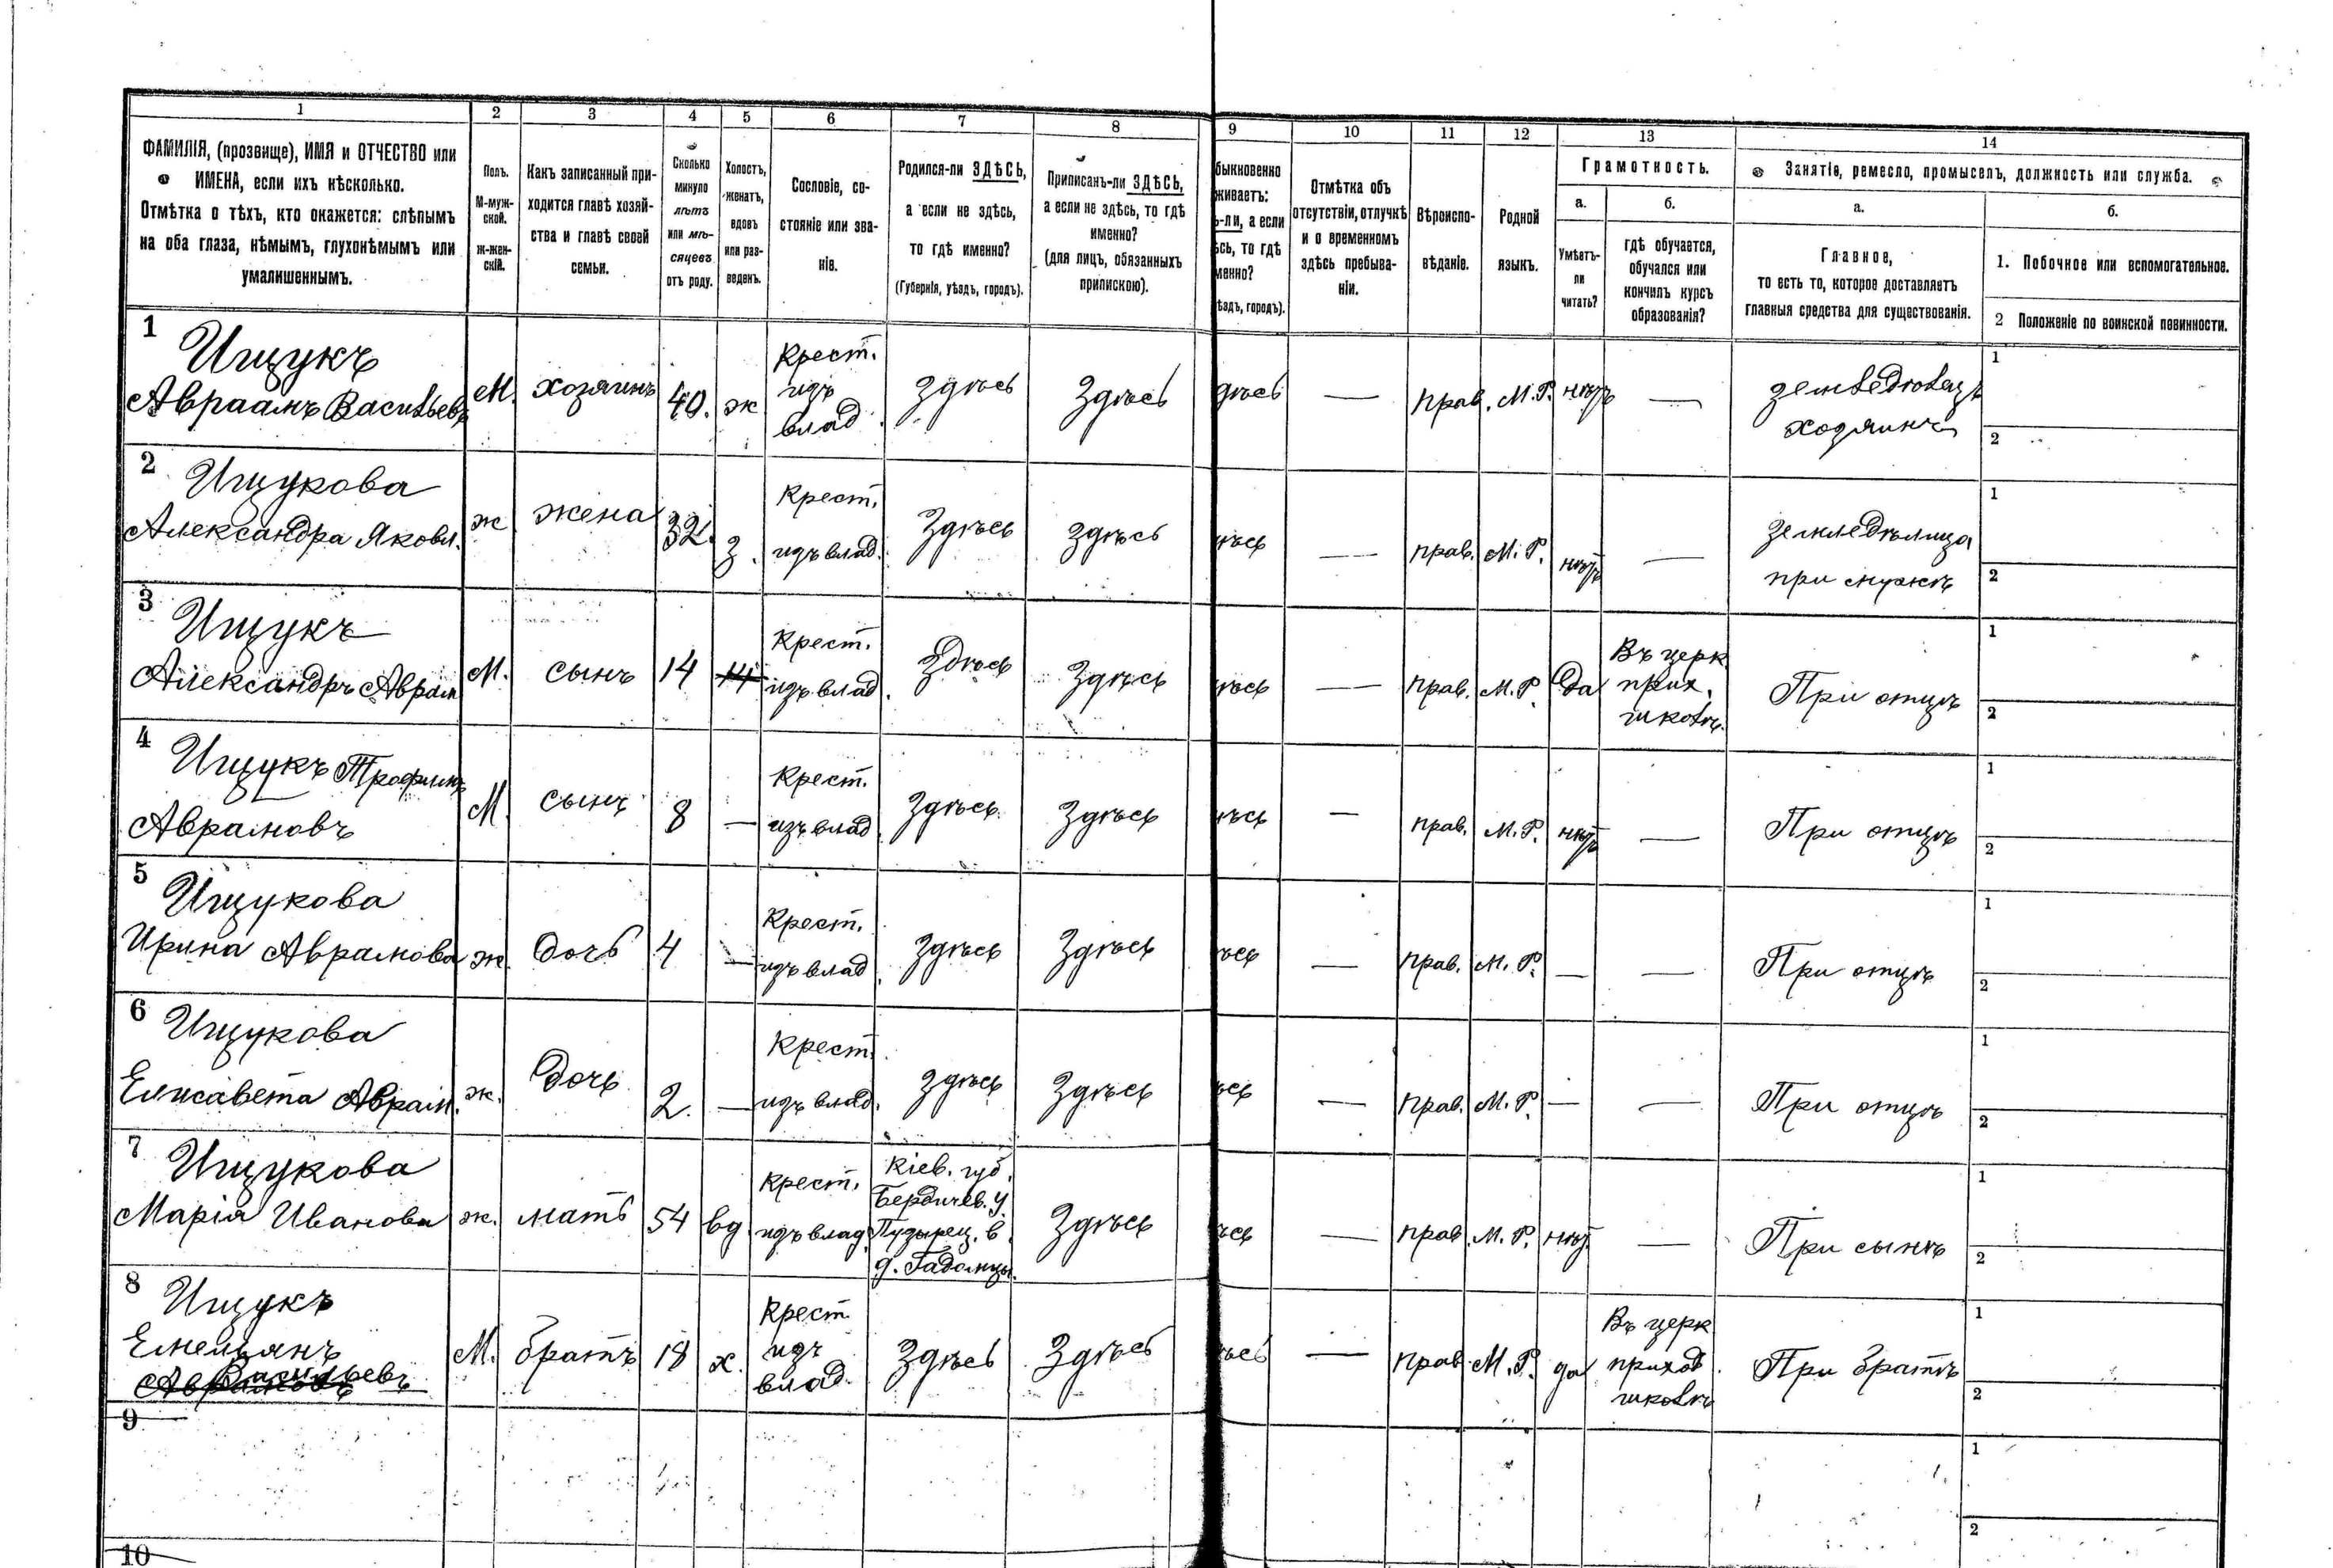 1 2 3 4 5 6 7 8 9 10 11 12 13 14
ФАМИЛІЯ, (прозвище), ИМЯ и ОТЧЕСТВО или
ИМЕНА, если ихъ нѣсколько.
Отмѣтка о тѣхъ, кто окажется: слѣпымъ
на оба глаза, нѣмымъ, глухонѣмымъ или
умалишеннымъ.
Полъ.
М-муж-
ской.
ж-жен-
скій.
Какъ записанный при-
ходится главѣ хозяй-
ства и главѣ своей
семьи.
Сколько
минуло
лѣтъ
или мѣ-
сяцевъ
отъ роду.
Холостъ,
женатъ,
вдовъ
или раз-
веденъ.
Сословіе, со-
стояніе или зва-
ніе.
Родился-ли ЗДѢСЬ,
а если не здѣсь,
то гдѣ именно?
(Губернія, уѣздъ, городъ).
Приписанъ-ли ЗДѢСЬ,
а если не здѣсь, то гдѣ
именно?
(для лицъ, обязанныхъ
припискою).
быкновенно
живаетъ:
ь-ли, а если
ѣсь, то гдѣ
менно?
ѣздъ, городъ).
Отмѣтка объ
отсутствіи, отлучкѣ
и о временномъ
здѣсь пребыва-
ніи.
Вѣроиспо-
вѣданіе.
Родной
языкъ.
Грамотность.
а.
Умѣетъ-
ли
читать?
б.
гдѣ обучается,
обучался или
кончилъ курсъ
образованія?
Занятіе, ремесло, промыселъ, должность или служба.
а.
Главное,
то есть то, которое доставляетъ
главныя средства для существованія.
б.
1. Побочное или вспомогательное.
2 Положеніе по воинской повинности.
1
Ищукъ
Авраамъ Васильевъ
М.
хозяинъ
40.
ж
Крест.
изъ
влад.
здѣсь
Здѣсь
дѣсь
—
прав.
М.Р.
нѣтъ
—
земледѣлецъ
хозяинъ
1
2
2
Ищукова
Александра Яковл.
ж
жена
32.
з.
Крест.
изъ влад.
Здѣсь
здѣсь
ѣсь
—
прав.
М.Р.
нѣтъ
—
земледѣлица
при мужѣ
1
2
3
Ищукъ
Александръ Аврам
М.
сынъ
14
14
Крест.
изъ влад.
Здѣсь
Здѣсь
ѣсь
—
прав.
М.Р.
Да
Въ церк.
прих.
школѣ.
При отцѣ
1
2
4
Ищукъ Трофимъ
Аврамовъ
М.
сынъ
8
—
Крест.
изъ влад.
Здѣсь
Здѣсь
ѣсь
—
прав.
М.Р.
нѣтъ
—
При отцѣ
1
2
5
Ищукова
Ирина Аврамова
ж.
Дочь
4
—
Крест.
изъ влад.
Здѣсь
Здѣсь
ѣсь
—
прав.
М.Р.
—
—
При отцѣ
1
2
6
Ищукова
Елисавета Аврам.
ж.
Дочь
2.
—
Крест.
изъ влад.
Здѣсь
Здѣсь
ѣсь
—
прав.
М.Р.
—
—
При отцѣ
1
2
7
Ищукова
Марія Иванова
ж.
мать
54
вд.
Крест.
изъ влад.
Кіев. губ.
Бердичев. у.
Пузырец. в.
д.
Здѣсь
ѣсь
—
прав.
М.Р.
нѣтъ
—
При сынѣ
1
2
8
Ищукъ
Емельянъ
Васильевъ
Аврамовъ
М.
братъ
18
х.
Крест
изъ
влад.
Здѣсь
Здѣсь
ѣсь
—
прав.
М.Р.
да
Въ церк
приход.
школѣ
При братѣ
1
2
9
1
2
10